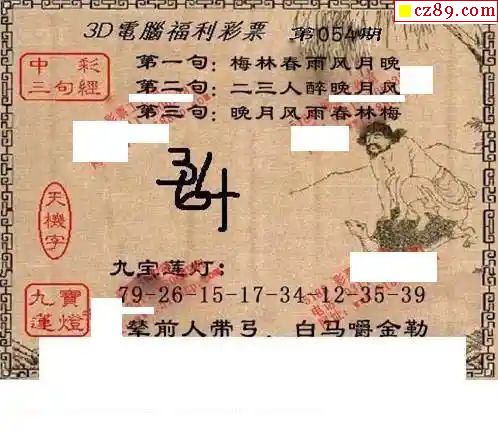 cz89.com
3D電腦福利彩票 第054期
中彩
三句經
第一句：梅林春雨風月晚
第二句：二三人醉晚月风
第三句：晚月风雨春林梅
天機字
九宝莲灯：
79-26-15-17-34-12-35-39
九寶
蓮燈
辇前人带弓，白马嚼金勒